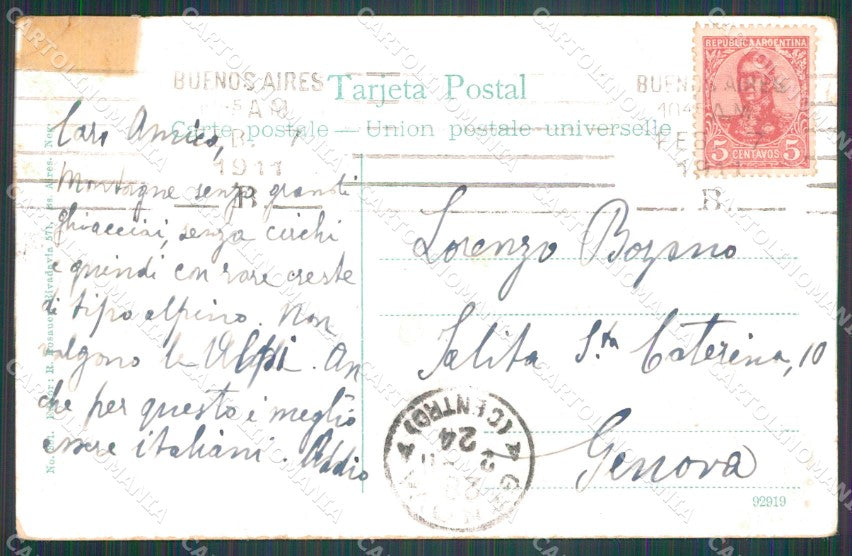 Tarjeta Postal
Carte postale — Union postale universelle
BUENOS AIRES
1911
B
REPUBLICA ARGENTINA
5 CENTAVOS 5
BUENOS AIRES
FEB 7
B.
Caro
Montagne senza grandi
ghiacciai, senza circhi
e quindi con rare creste
di tipo alpino. Non
valgono le Alpi. An
che per questo è meglio
essere italiani. Addio
Lorenzo Bozano
Salita S.ta Caterina, 10
Genova
(CENTRO)
24
92919
CARTOLINOMANIA